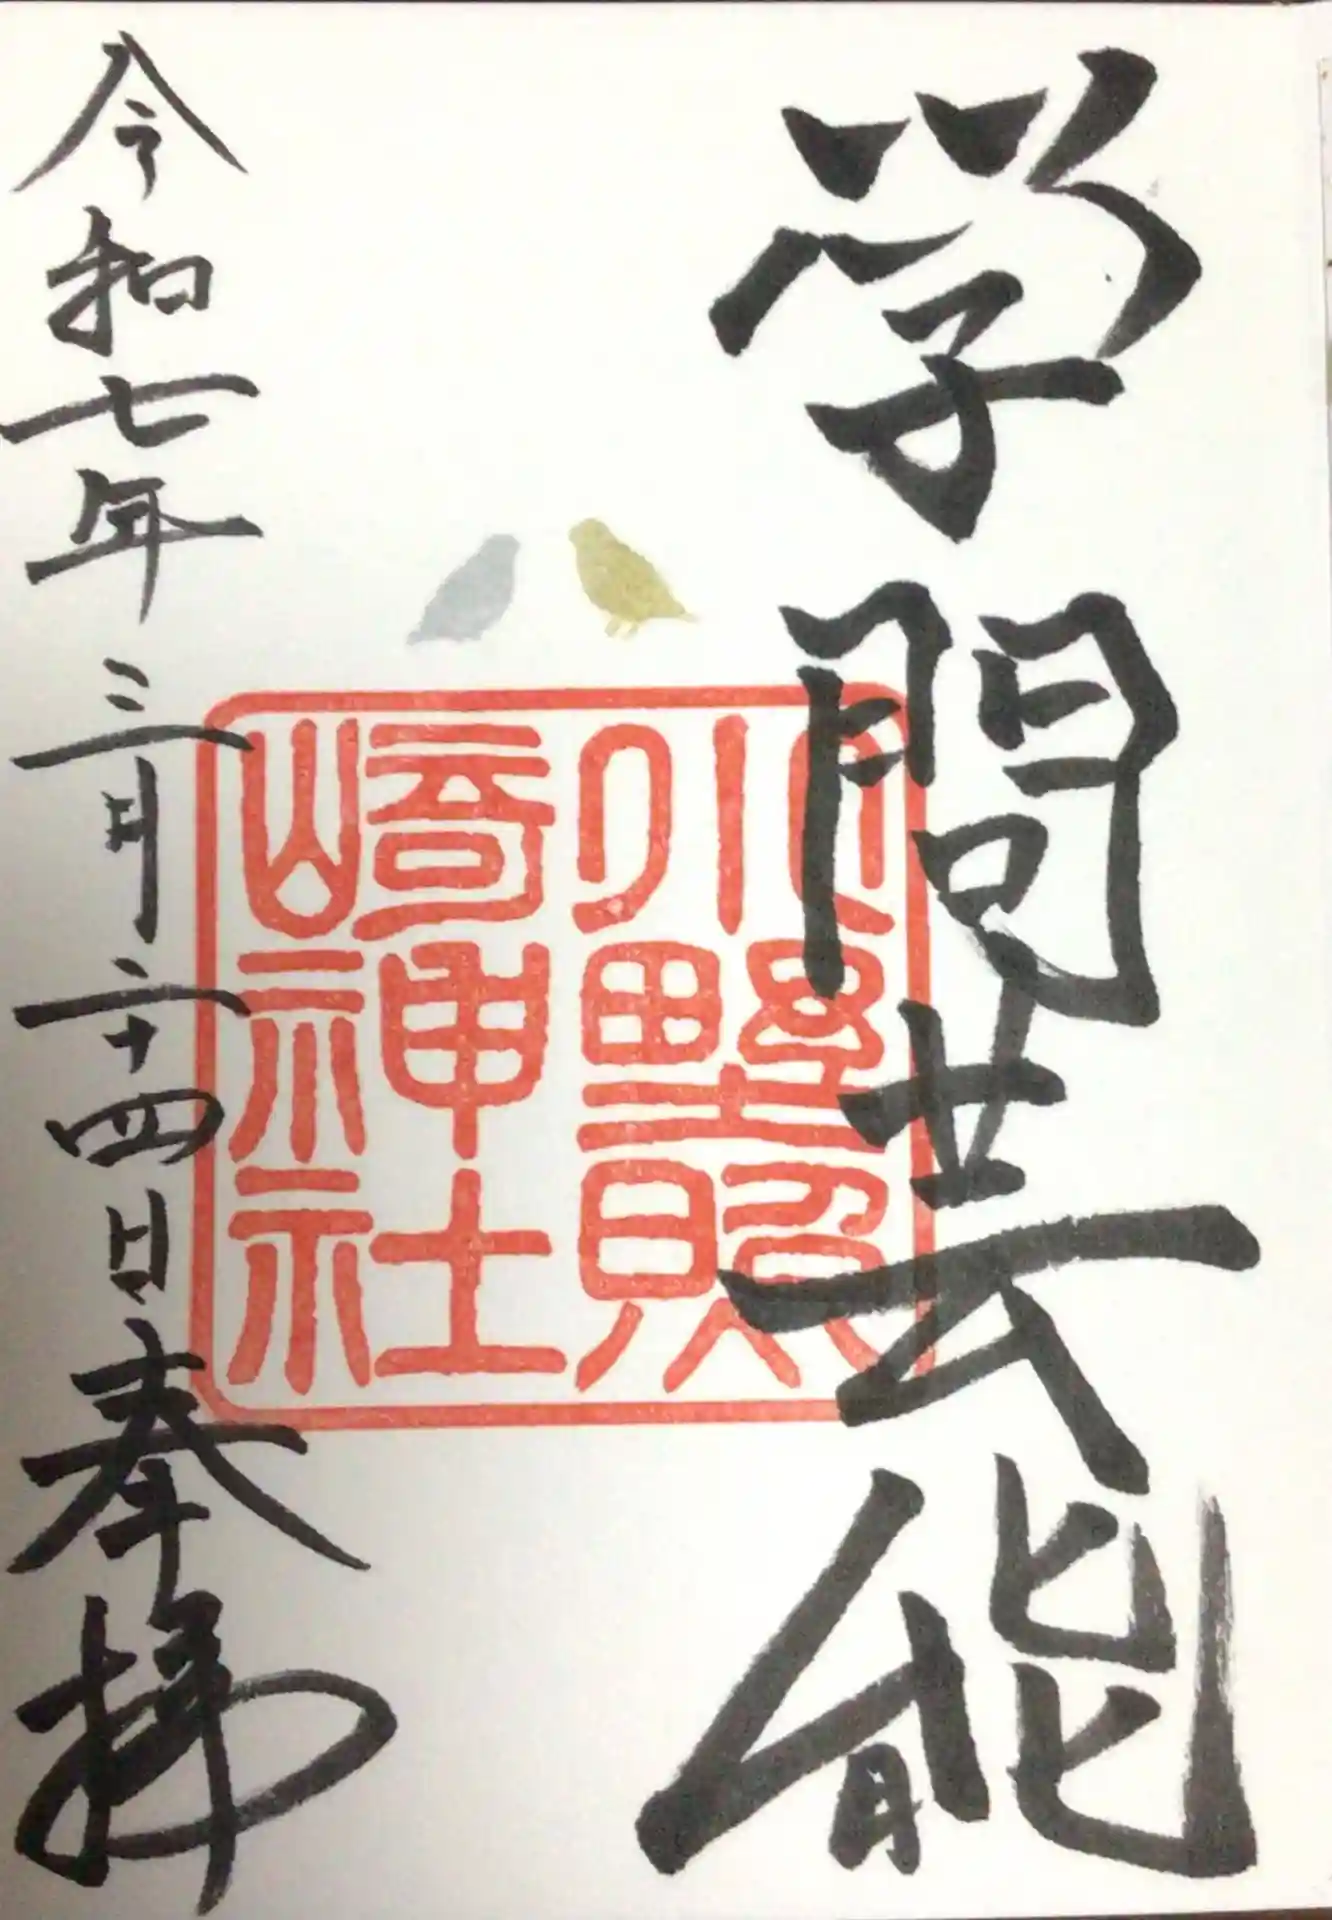 学問芸能
小野照
崎神社
令和七年三月二十四日奉拝